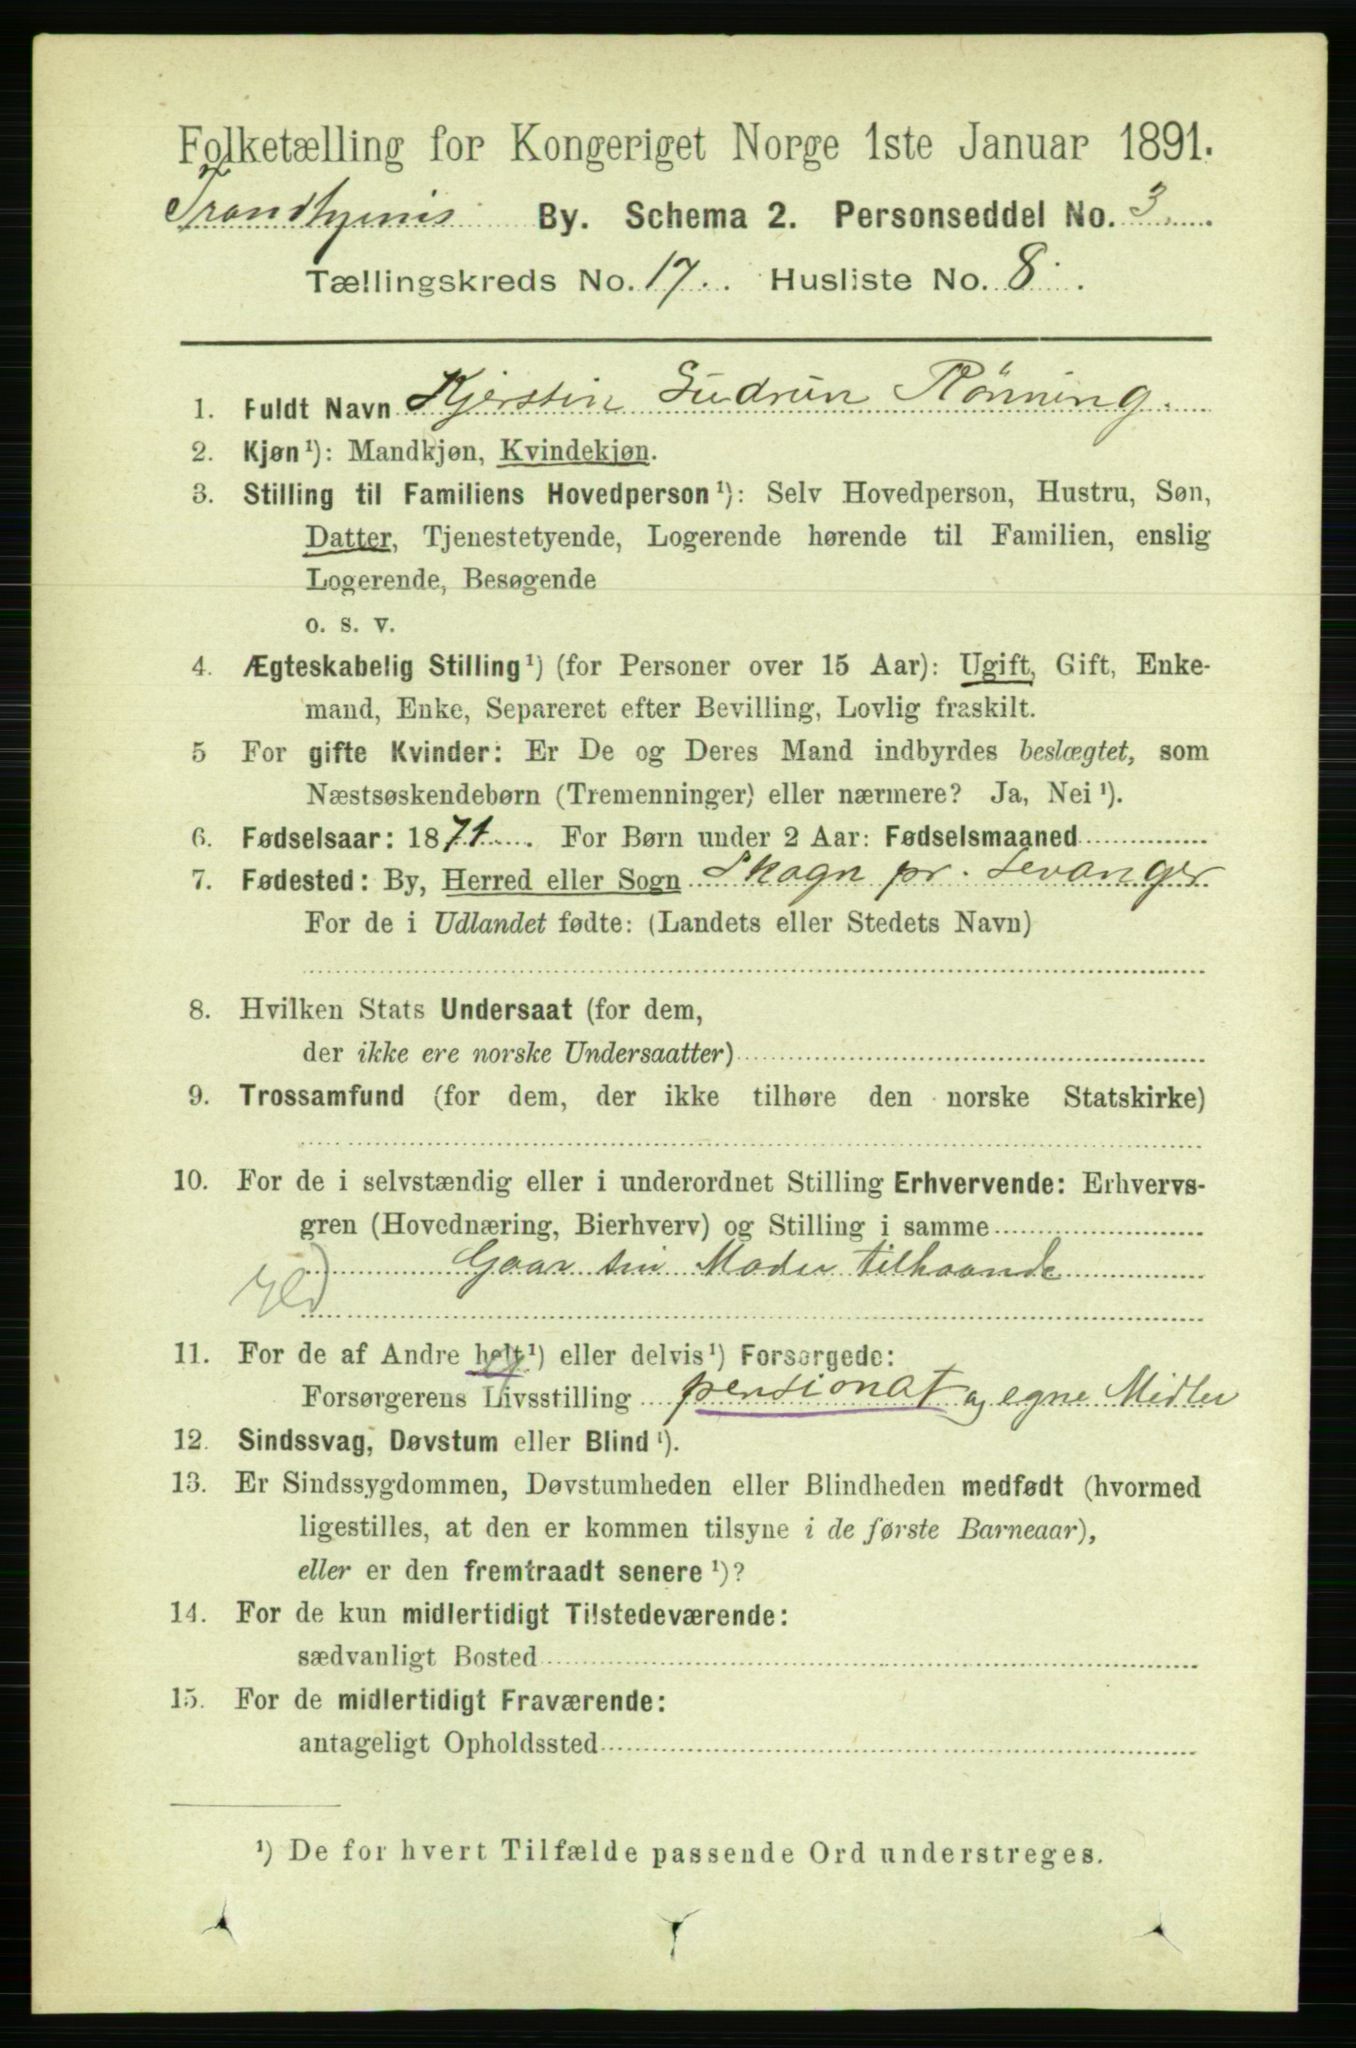 Folketælling for Kongeriget Norge 1ste Januar 1891.
Trondhjems By. Schema 2. Personseddel No. 3
Tællingskreds No. 17. Husliste No. 8.
1. Fuldt Navn Kjerstin Gudrun Rönning.
2. Kjøn ¹): Mandkjøn, Kvindekjøn.
3. Stilling til Familiens Hovedperson ¹): Selv Hovedperson, Hustru, Søn,
Datter, Tjenestetyende, Logerende hørende til Familien, enslig
Logerende, Besøgende
o. s. v.
4. Ægteskabelig Stilling ¹) (for Personer over 15 Aar): Ugift, Gift, Enke-
mand, Enke, Separeret efter Bevilling, Lovlig fraskilt.
5 For gifte Kvinder: Er De og Deres Mand indbyrdes beslægtet, som
Næstsøskendebørn (Tremenninger) eller nærmere? Ja, Nei ¹).
6. Fødselsaar: 1871. For Børn under 2 Aar: Fødselsmaaned
7. Fødested: By, Herred eller Sogn Skogn pr. Levanger
For de i Udlandet fødte: (Landets eller Stedets Navn)
8. Hvilken Stats Undersaat (for dem,
der ikke ere norske Undersaatter)
9. Trossamfund (for dem, der ikke tilhøre den norske Statskirke)
10. For de i selvstændig eller i underordnet Stilling Erhvervende: Erhvervs-
gren (Hovednæring, Bierhverv) og Stilling i samme
Gaar sin Moder tilhaande
11. For de af Andre helt ¹) eller delvis ¹) Forsørgede:
Forsørgerens Livsstilling pensionat og egne Midler
12. Sindssvag, Døvstum eller Blind ¹).
13. Er Sindssygdommen, Døvstumheden eller Blindheden medfødt (hvormed
ligestilles, at den er kommen tilsyne i de første Barneaar),
eller er den fremtraadt senere ¹)?
14. For de kun midlertidigt Tilstedeværende:
sædvanligt Bosted
15. For de midlertidigt Fraværende:
antageligt Opholdssted
¹) De for hvert Tilfælde passende Ord understreges.